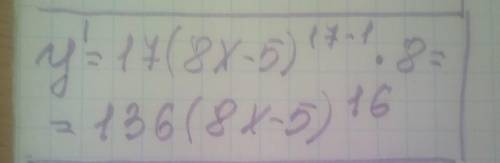 y' = 17(8x-5)^17-1 · 8 =
= 136(8x-5)^16